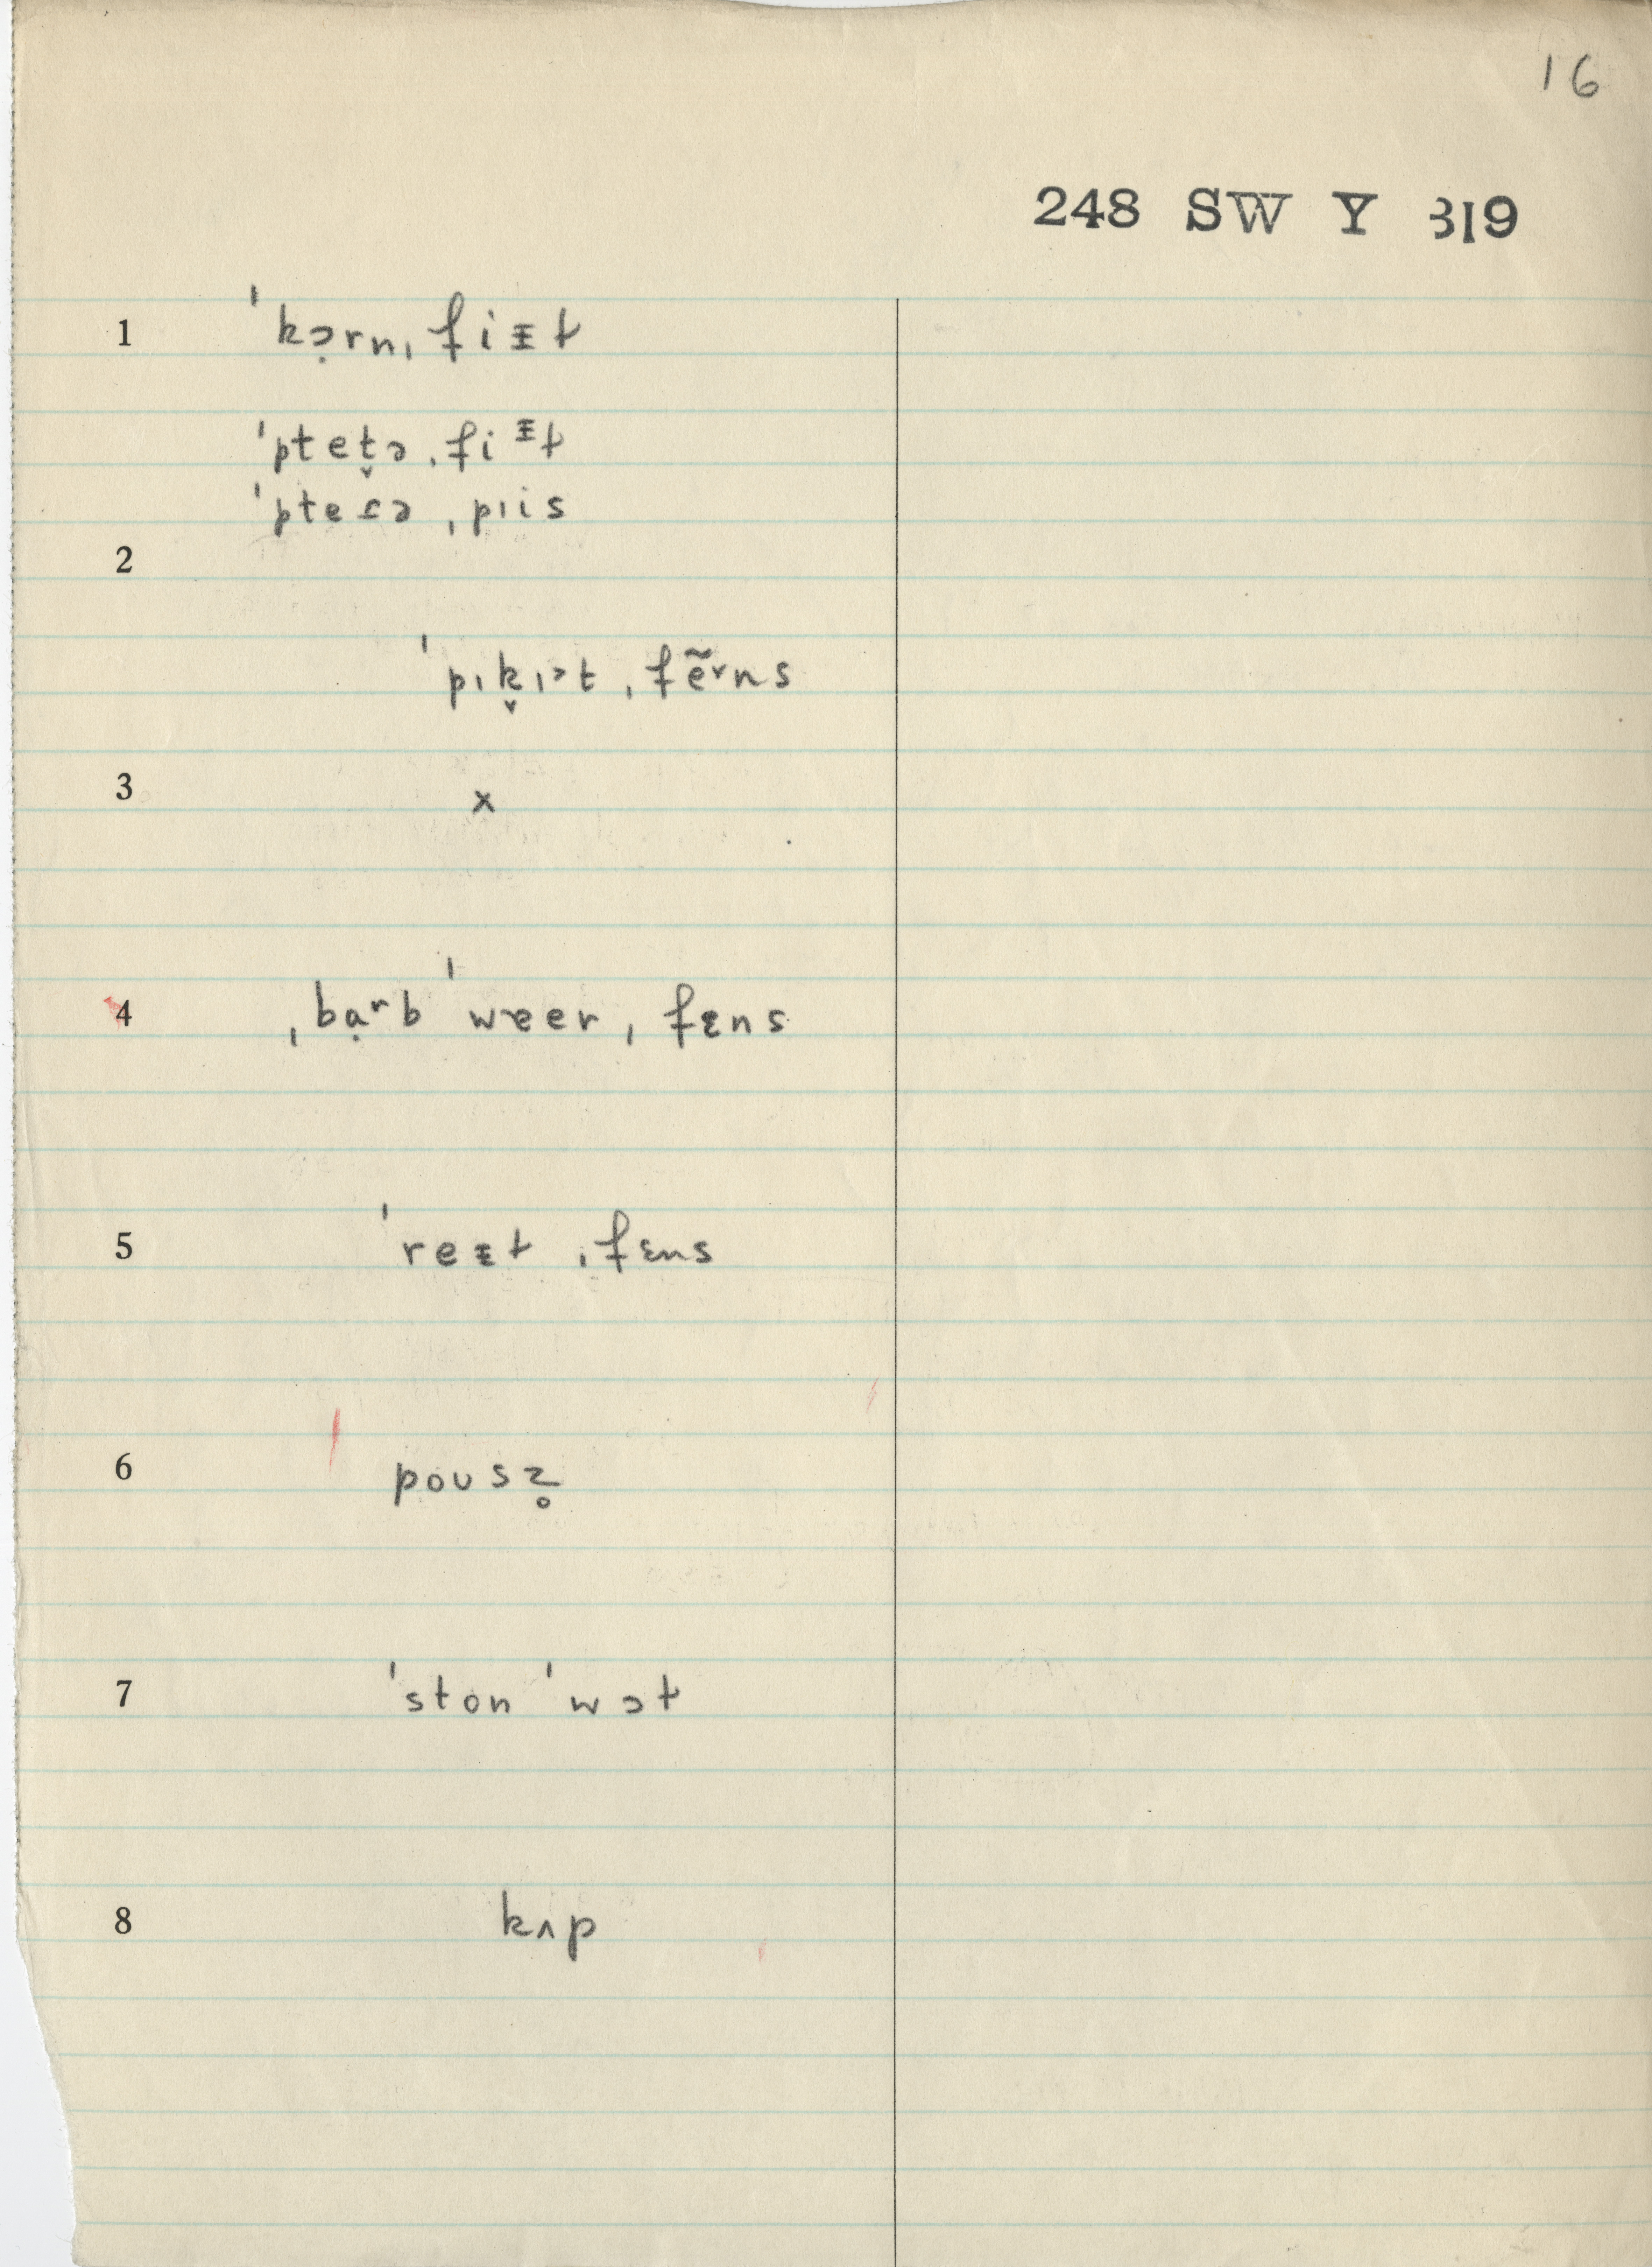 16
248 SW Y 319
1 ˈkɔ̣rnˌfiᵻɫ
ˈpteṱɔˌfiᵻɫ
ˈpteɾɔ ˌpɪis
2
ˈpɪk̬ɪᵊtˌfẽɤns
3 x
4 ˌbạʳbˈwɐerˌfɛns
5 ˈreᵻɫ ˌfɛns
6 poʊsz̥
7 ˈston ˈwɔɫ
8 kʌp